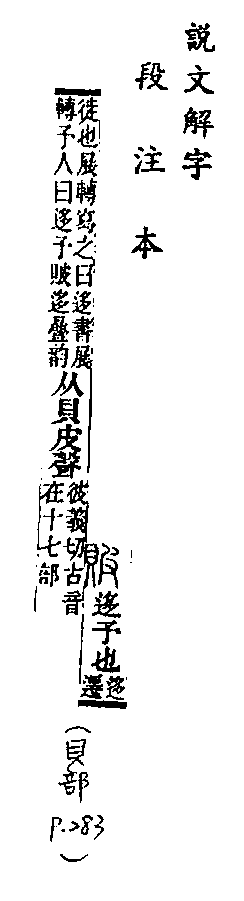 說文解字
段注本
貱迻予也迻
遷
徙也展轉寫之曰迻書展
轉予人曰迻予貱迻疊韵
从貝皮聲
彼義切古音
在十七部
(貝部
P.283)